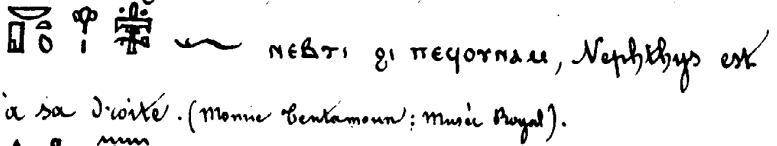 ⲛⲉⲃⲧⲓ ϩⲓ ⲡⲉϥⲟⲩⲛⲁⲙ, Nephthys est
à sa droite. (Momie Tentamoun : Musée Royal).